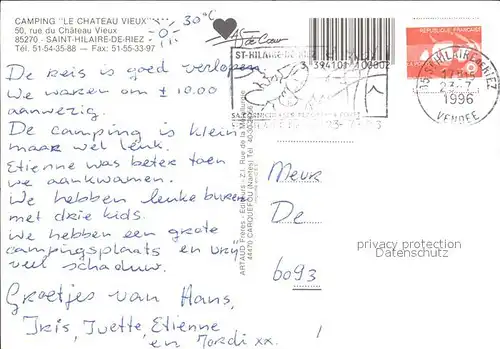 CAMPING "LE CHATEAU VIEUX"
50, rue du Château Vieux
85270 - SAINT-HILAIRE-DE-RIEZ
Tél. 51-54-35-88 — Fax: 51-55-33-97
30°C
De reis is goed verlopen.
We waren om ± 10.00
aanwezig.
De camping is klein
maar wel leuk.
Etienne was beter toen
we aankwamen.
We hebben leuke buren
met drie kids.
We hebben een grote
campingsplaats en vrij
veel schaduw.
Groetjes van Hans,
Iris, Yvette, Etienne
en Jordi xx.
ARTAUD Frères - Editeurs - Z.I. Rue de la Métallurgie
44470 CARQUEFOU (Nantes) Tél.
ST-HILAIRE-DE-RIEZ
3 394101 403802
REPUBLIQUE FRANÇAISE
85 ST HILAIRE DE RIEZ
23-7
1996
VENDEE
Meur
De
6093
privacy protection
Datenschutz